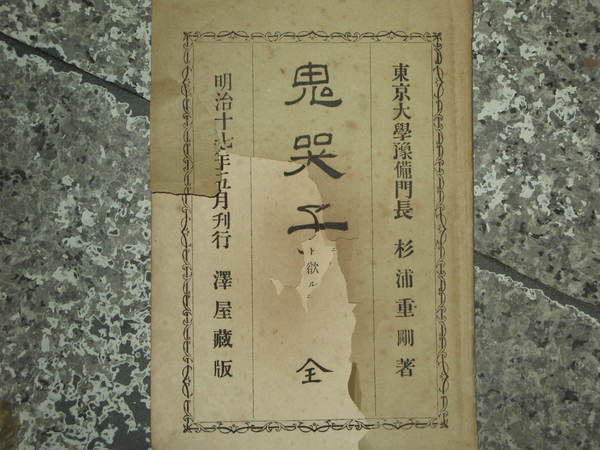 東京大學豫備門長 杉浦重剛著
鬼哭子 全
ト欲ル
明治十七年五月刊行 澤屋藏版